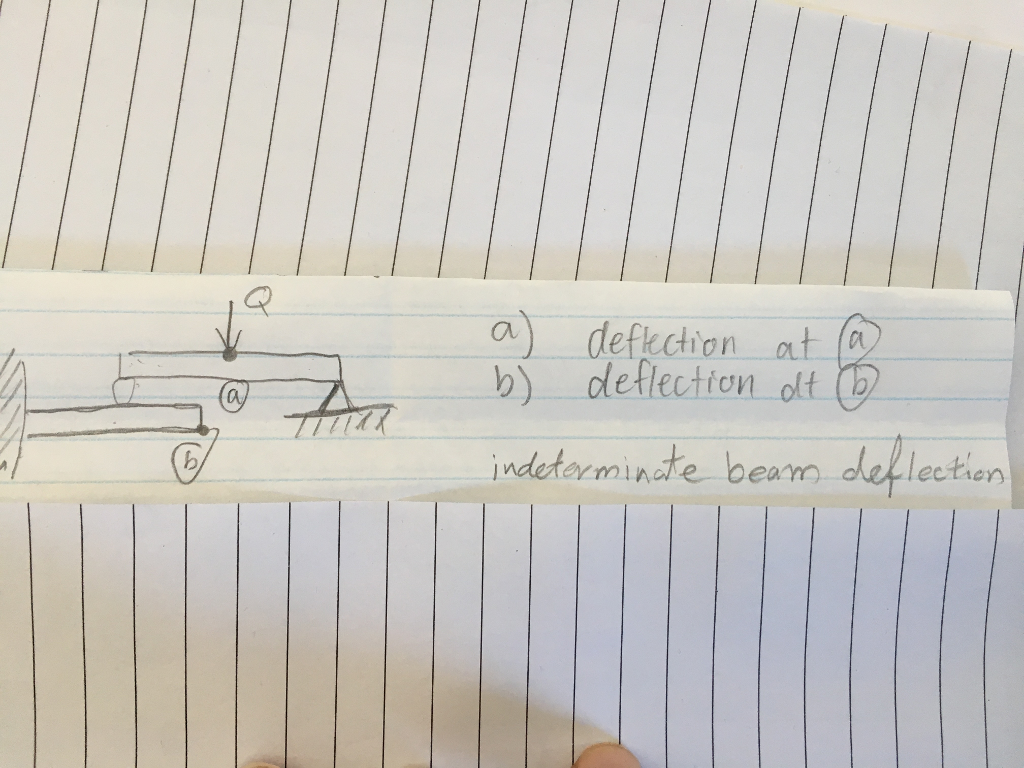 Q
a) deflection at a
b) deflection at b
a
b
indeterminate beam deflection